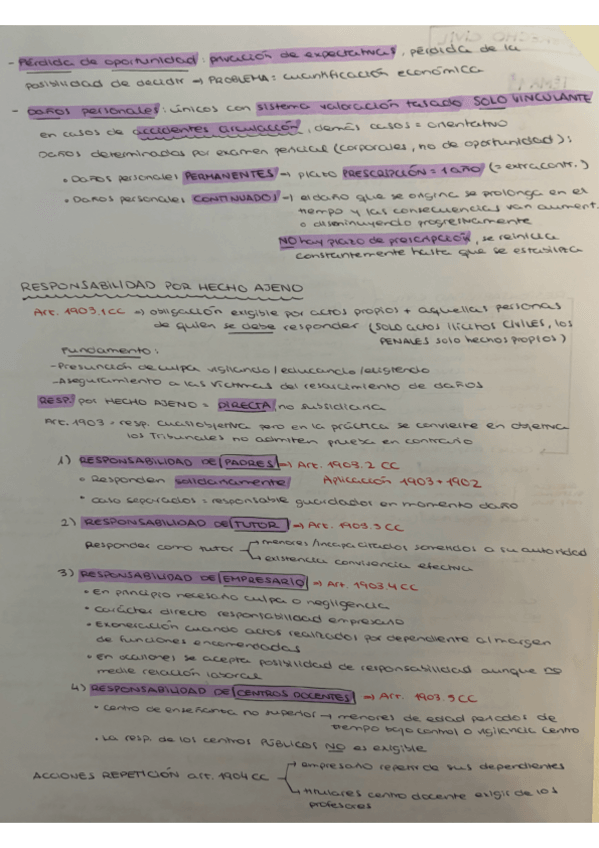 - Pérdida de oportunidad: privación de expectativas, pérdida de la
posibilidad de decidir → PROBLEMA: cuantificación económica
- Daños personales: únicos con sistema valoración tasado SOLO VINCULANTE
en casos de accidentes circulación, demás casos = orientativo
Daños determinados por examen pericial (corporales, no de oportunidad):
• Daños personales PERMANENTES → plazo PRESCRIPCIÓN = 1 AÑO (= extracontr.)
• Daños personales CONTINUADOS → el daño que se origina se prolonga en el
tiempo y las consecuencias van aument.
o disminuyendo progresivamente
NO hay plazo de prescripción, se reinicia
constantemente hasta que se estabiliza
RESPONSABILIDAD POR HECHO AJENO
Art. 1903.1 CC → obligación exigible por actos propios + aquellas personas
de quien se debe responder (SOLO actos ilícitos CIVILES, los
PENALES solo hechos propios)
Fundamento:
- Presunción de culpa vigilando/educando/eligiendo
- Aseguramiento a las víctimas del resarcimiento de daños
RESP. por HECHO AJENO = DIRECTA, no subsidiaria
Art. 1903 = resp. cuasiobjetiva pero en la práctica se convierte en objetiva
los Tribunales no admiten prueba en contrario
1) RESPONSABILIDAD DE PADRES → Art. 1903.2 CC
• Responden solidariamente Aplicación 1903 + 1902
• caso separados = responsable guardados en momento daño
2) RESPONSABILIDAD DE TUTOR → Art. 1903.3 CC
Responder como tutor → menores/incapacitados sometidos a su autoridad
→ existencia convivencia efectiva
3) RESPONSABILIDAD DE EMPRESARIO → Art. 1903.4 CC
• En principio necesario culpa o negligencia
• Carácter directo responsabilidad empresario
• Exoneración cuando actos realizados por dependiente al margen
de funciones encomendadas
• En ocasiones se acepta posibilidad de responsabilidad aunque no
medie relación laboral
4) RESPONSABILIDAD DE CENTROS DOCENTES → Art. 1903.5 CC
• centro de enseñanza no superior → menores de edad periodos de
tiempo bajo control o vigilancia centro
• La resp. de los centros PÚBLICOS NO es exigible
ACCIONES REPETICIÓN art. 1904 CC → empresario repetir de sus dependientes
→ titulares centro docente exigir de los
profesores